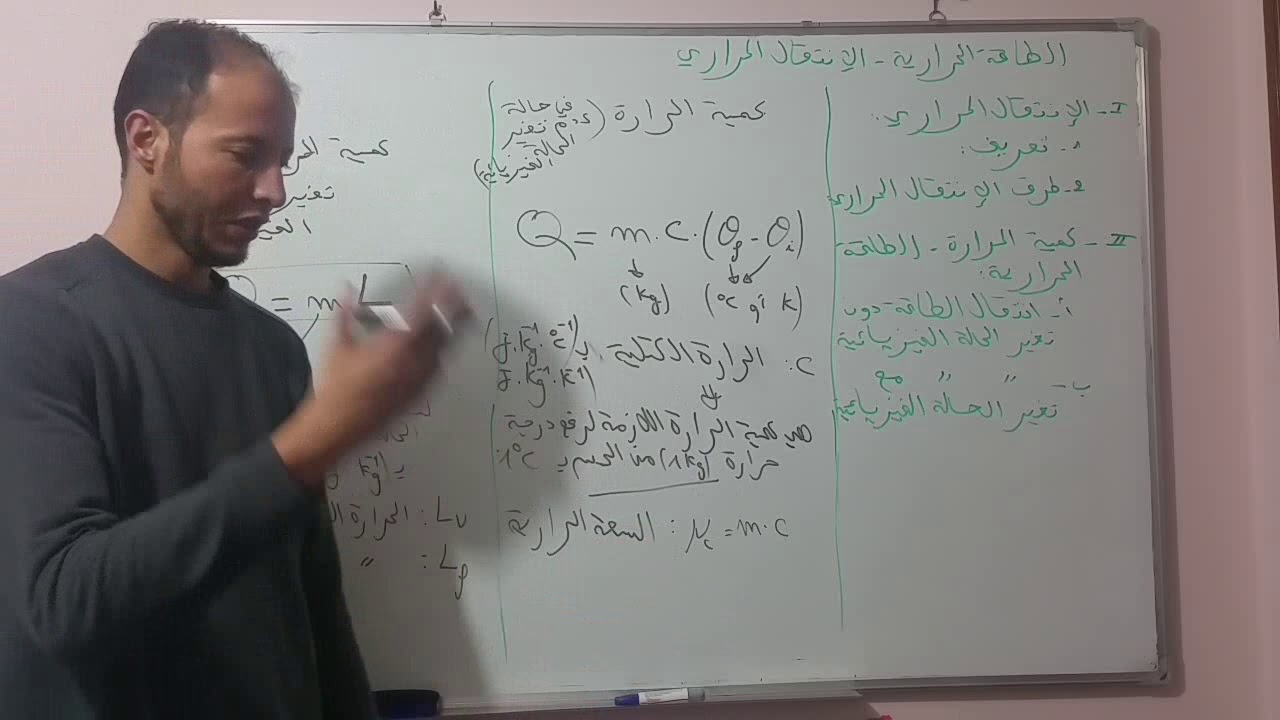 الطاقة الحرارية - الإنتقال الحراري
I - الإنتقال الحراري.
1- تعريف:
2- طرق الإنتقال الحراري
II - كمية الحرارة - الطاقة
الحرارية:
أ- انتقال الطاقة دون
تغير الحالة الفيزيائية
ب- " " مع
تغير الحالة الفيزيائية
كمية الحرارة (في حالة
عدم تغير
الحالة الفيزيائية)
Q = m.c.(θf - θi)
(kg) (°C أو K)
c: الحرارة الكتلية ب (J.kg⁻¹.°C⁻¹)
(J.kg⁻¹.K⁻¹)
هي كمية الحرارة اللازمة لرفع درجة
حرارة (1kg) من الجسم ب 1°C.
μc = m.c : السعة الحرارية
كمية
تغير
= m.L
ب kg⁻¹
Lv : الحرارة
Lf : "